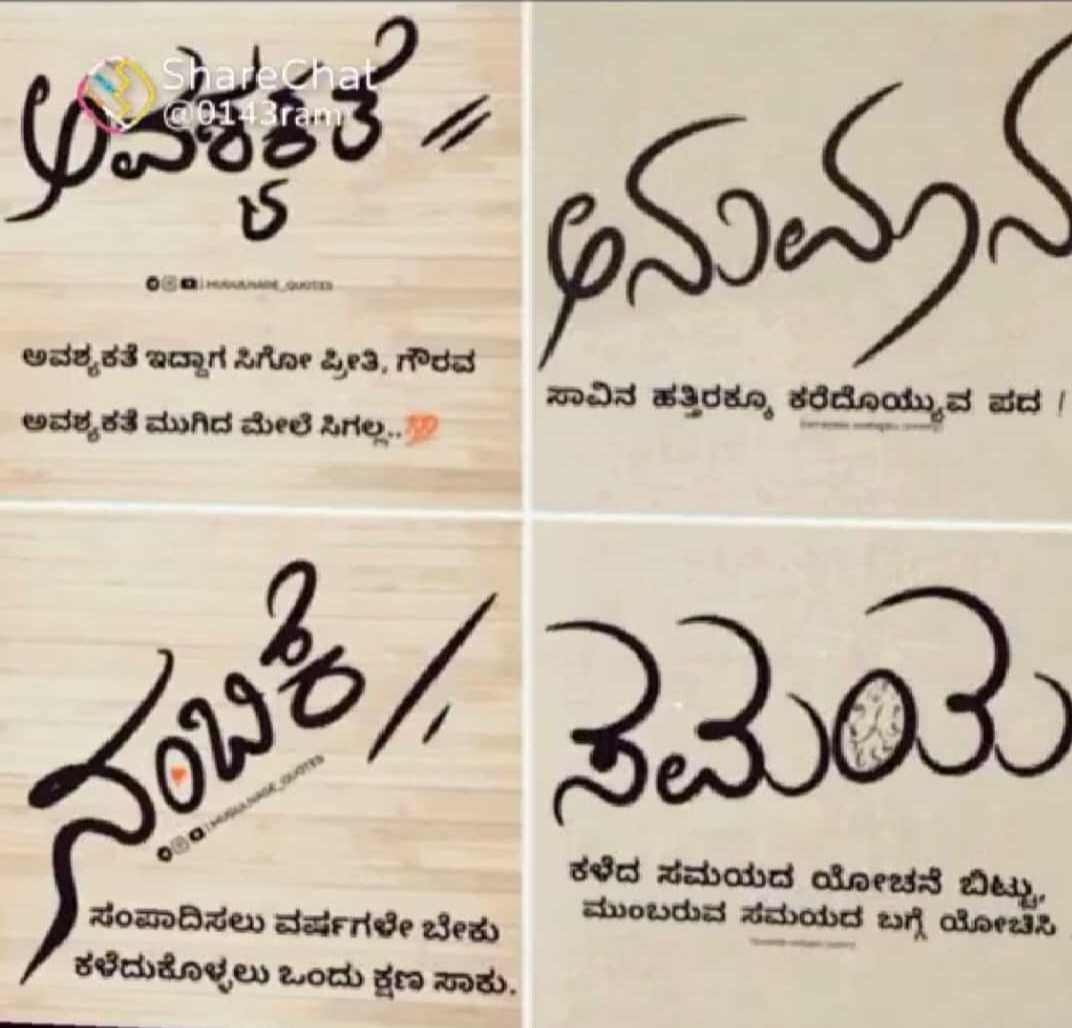 ShareChat
@0143ram
ಅವಶ್ಯಕತೆ
ಅವಶ್ಯಕತೆ ಇದ್ದಾಗ ಸಿಗೋ ಪ್ರೀತಿ, ಗೌರವ
ಅವಶ್ಯಕತೆ ಮುಗಿದ ಮೇಲೆ ಸಿಗಲ್ಲ..💯
ಅನುಮಾನ
ಸಾವಿನ ಹತ್ತಿರಕ್ಕೂ ಕರೆದೊಯ್ಯುವ ಪದ !
ನಂಬಿಕೆ
ಸಂಪಾದಿಸಲು ವರ್ಷಗಳೇ ಬೇಕು
ಕಳೆದುಕೊಳ್ಳಲು ಒಂದು ಕ್ಷಣ ಸಾಕು.
ಸಮಯ
ಕಳೆದ ಸಮಯದ ಯೋಚನೆ ಬಿಟ್ಟು,
ಮುಂಬರುವ ಸಮಯದ ಬಗ್ಗೆ ಯೋಚಿಸಿ